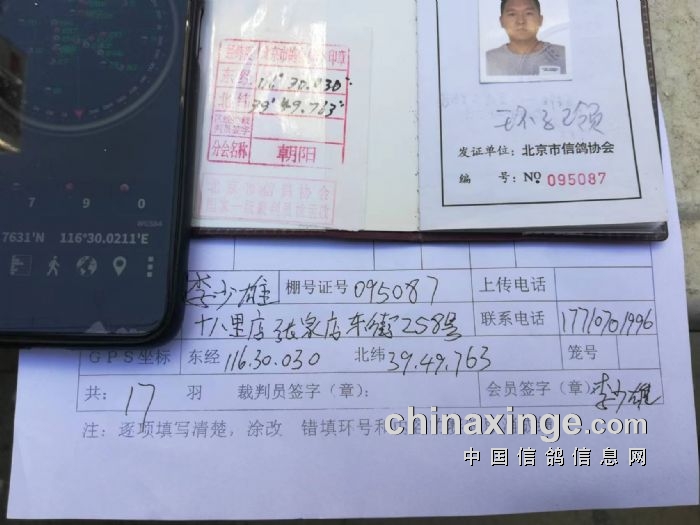 7 9 0
WGS84
7631'N 116°30.0211'E
东经 116°30.030"
北纬 39°49.763"
分会名称 朝阳
发证单位：北京市信鸽协会
编 号：NO 095087
李少雄 棚号证号 095087 上传电话
十八里店张家店东街258号 联系电话 17710701996
GPS坐标 东经 116.30.030 北纬 39.49.763 笼号
共：17 羽 裁判员签字（章）： 会员签字（章） 李少雄
注：逐项填写清楚，涂改 错填环号和
chinaxinge.com
中国信鸽信息网